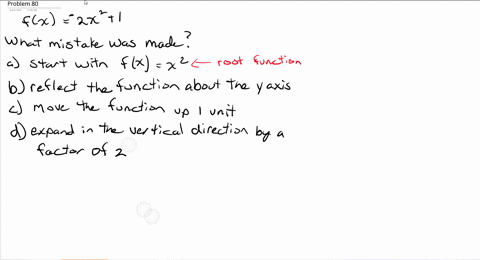 Problem 80
f(x) = -2x²+1
What mistake was made?
a) start with f(x) = x² ← root function
b) reflect the function about the y axis
c) move the function up 1 unit
d) expand in the vertical direction by a
factor of 2